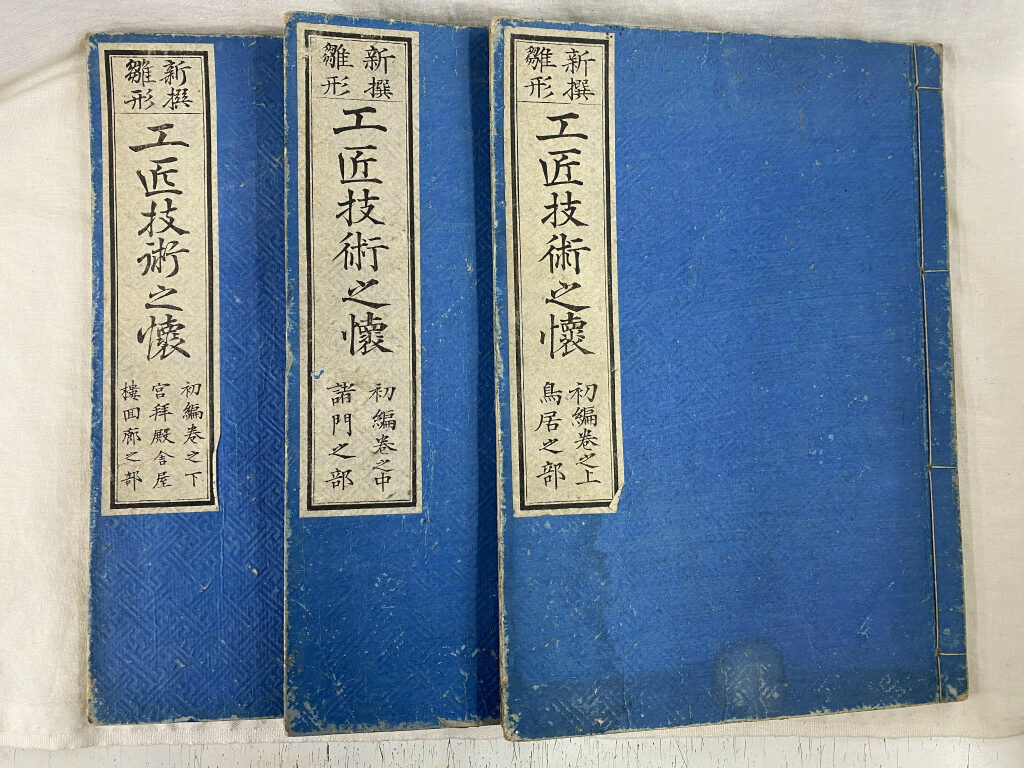 新撰
雛形
工匠技術之懐
初編巻之上
鳥居之部
新撰
雛形
工匠技術之懐
初編巻之中
諸門之部
新撰
雛形
工匠技術之懐
初編巻之下
宮拜殿舎屋
樓回廊之部